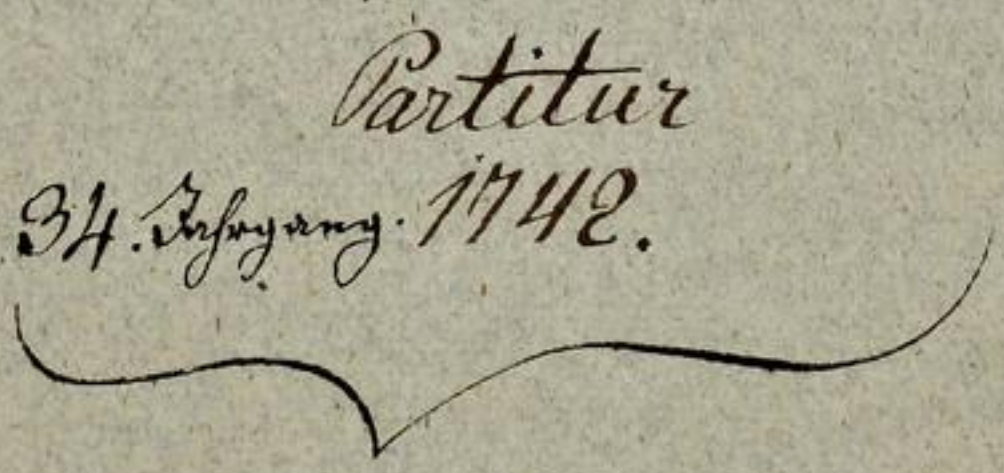 Partitur
34. Jahrgang. 1742.